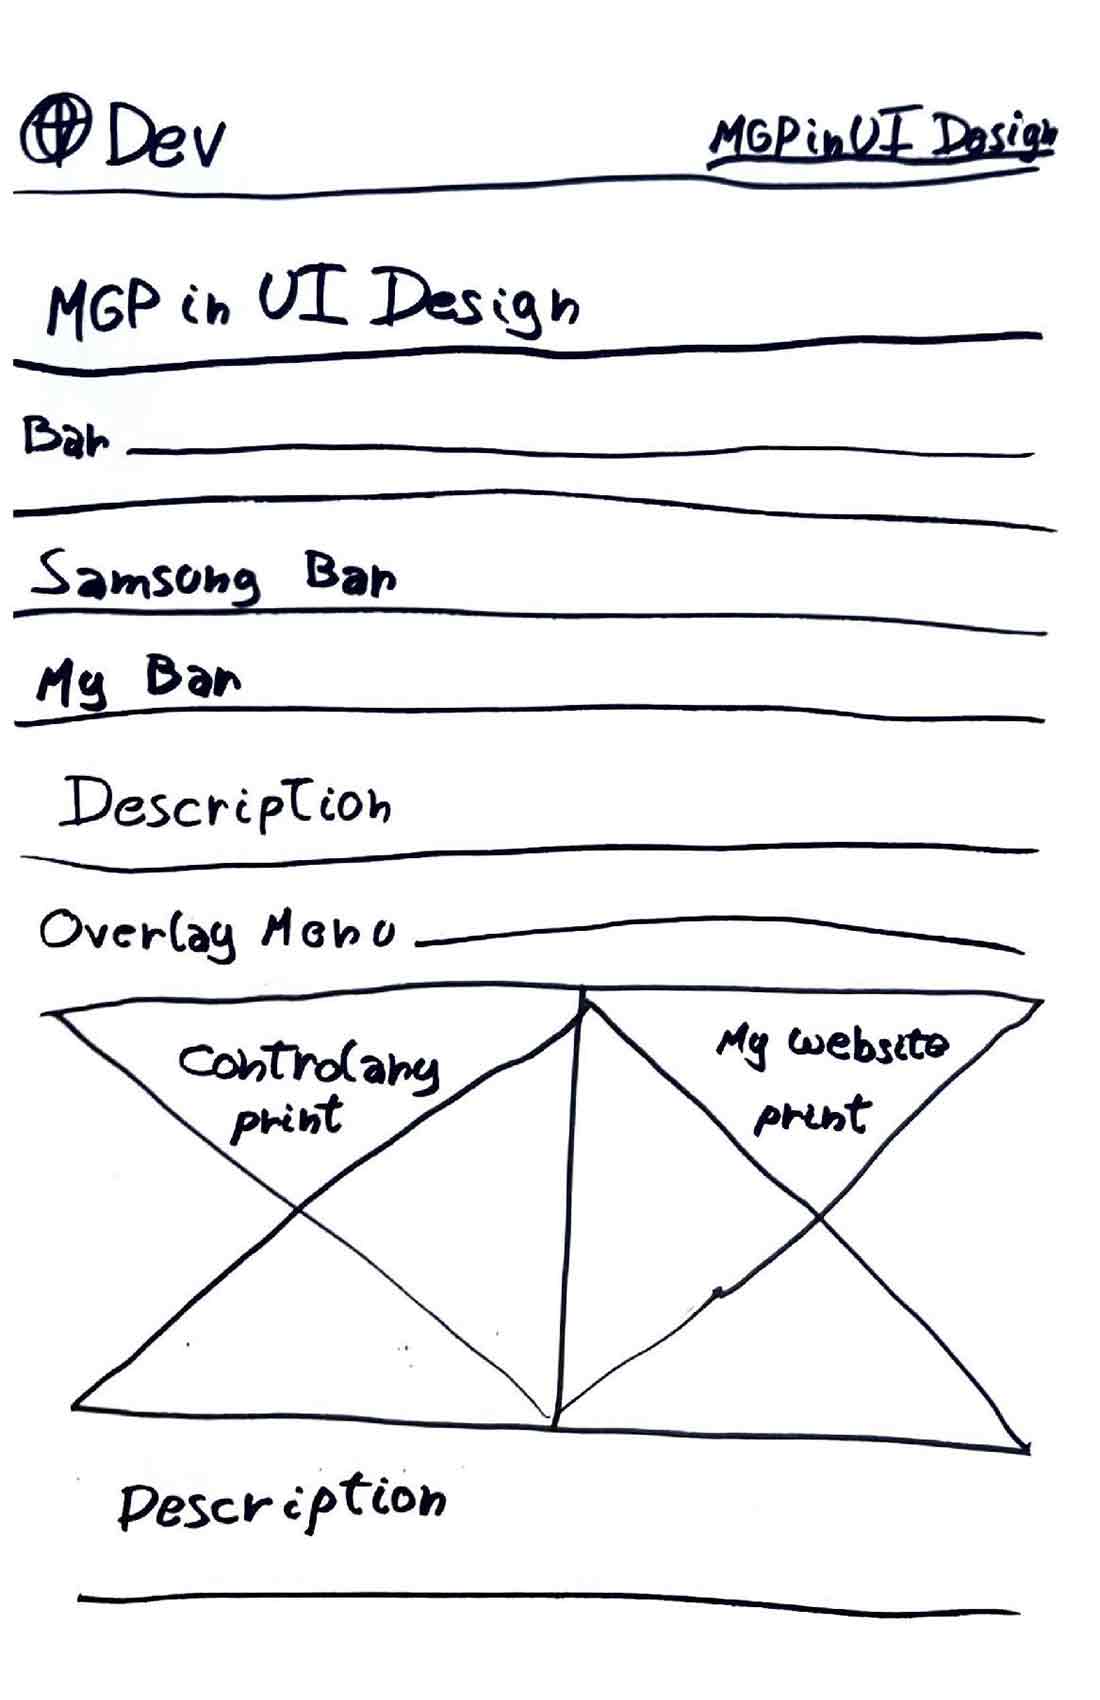 Dev
MGP in UI Design
MGP in UI Design
Bar
Samsung Bar
My Bar
Description
Overlay Menu
Controlany
print
My website
print
Description